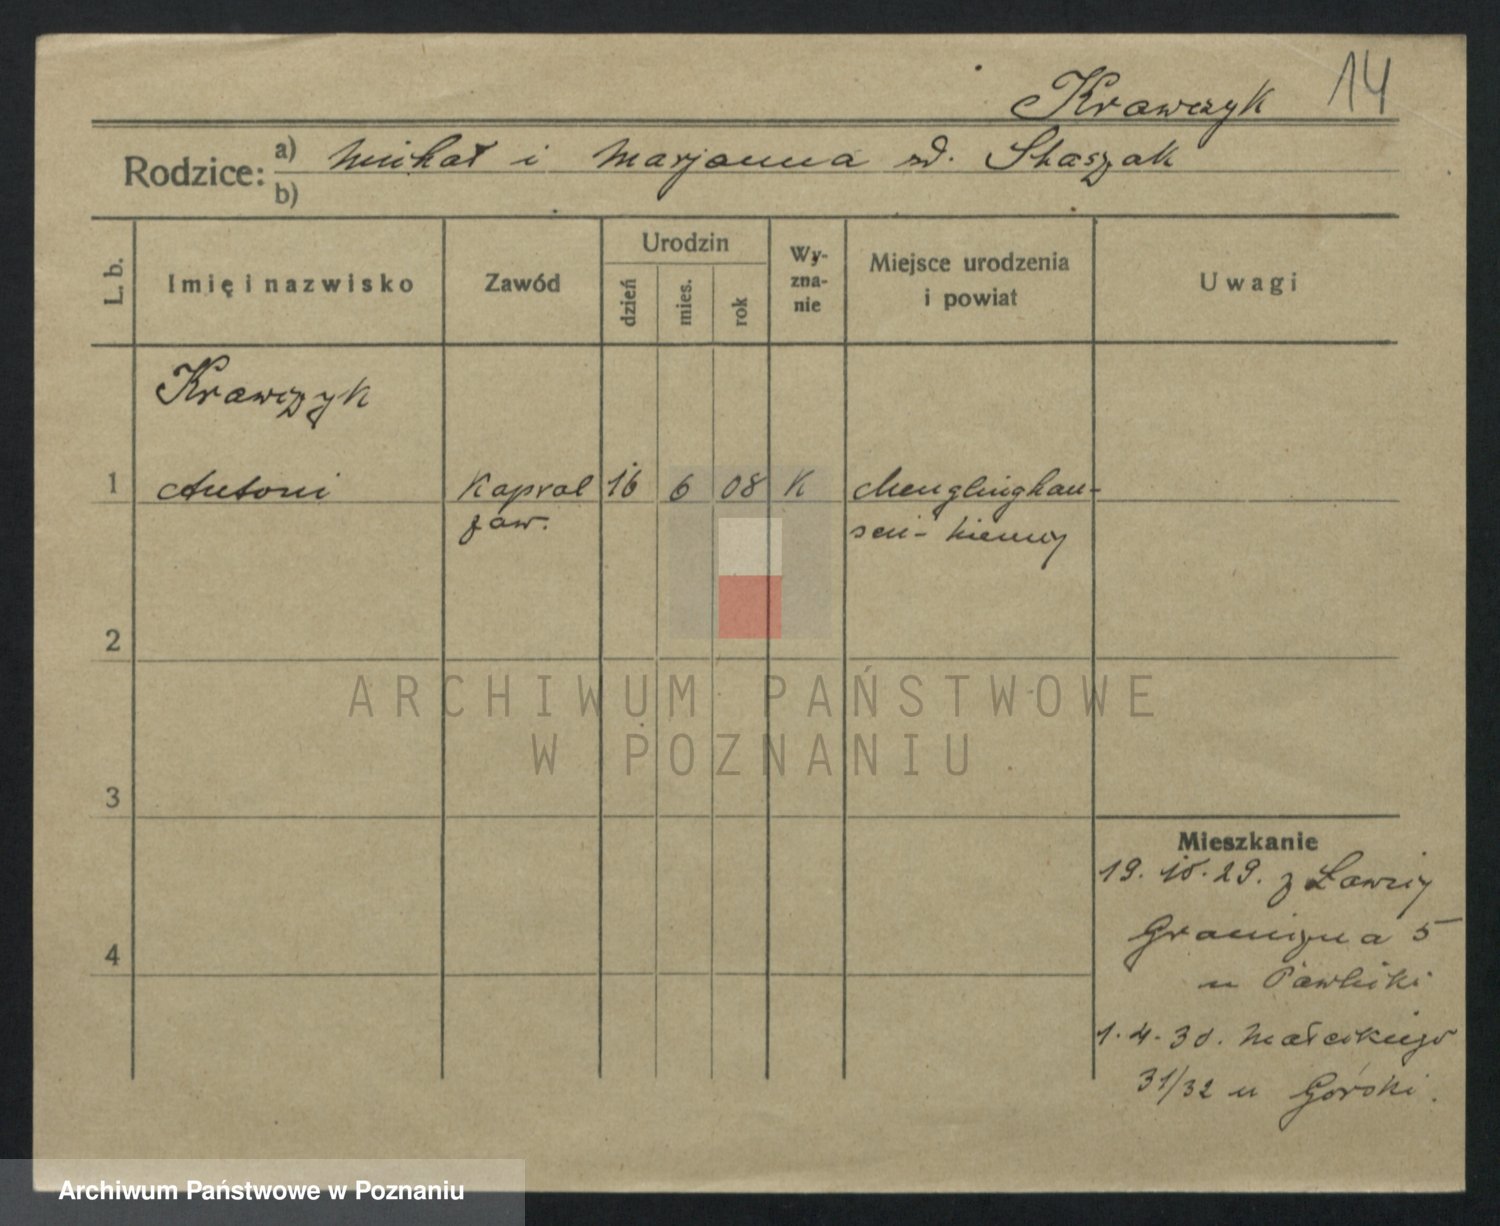 Krawczyk 14
Rodzice: a) Michał i Marjanna zd. Staszak
b)
L. b.
Imię i nazwisko
Zawód
Urodzin
dzień
mies.
rok
Wy-
zna-
nie
Miejsce urodzenia
i powiat
Uwagi
Krawczyk
1 Antoni Kapral 16 6 08 K Menglinghau-
zaw. sen - Niemcy
2
ARCHIWUM PAŃSTWOWE
W POZNANIU
3
Mieszkanie
19. 10. 29. z Ławicy
Graniczna 5
u Pawlicki
4
1. 4. 30. Małeckiego
31/32 u Górski.
Archiwum Państwowe w Poznaniu